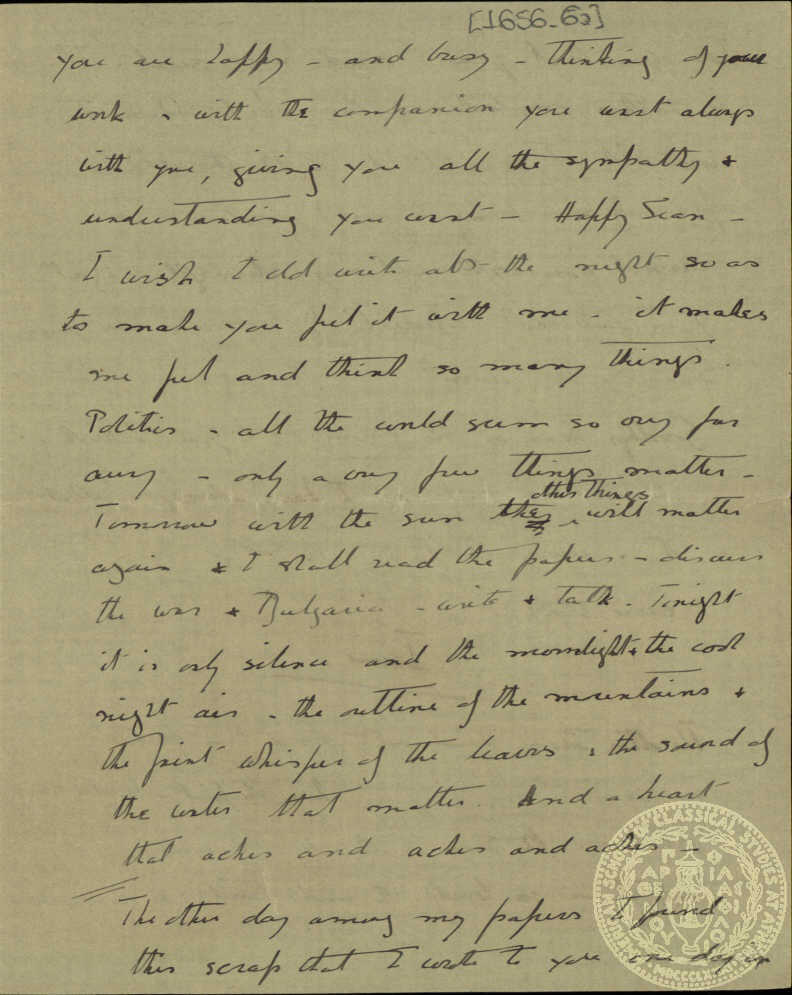 [1656-63]
you are happy - and busy - thinking of your
work - with the companion you want always
with you, giving you all the sympathy +
understanding you want - Happy Sean -
I wish I cld write abt the night so as
to make you feel it with me - it makes
me feel and think so many things.
Politics - all the world seem so very far
away - only a very few things matter -
Tomorrow with the sun this things will matter
again + I shall read the papers - discuss
the war + Bulgaria - write + talk. Tonight
it is only silence and the moonlight + the cool
night air - the outline of the mountains +
the faint whisper of the leaves + the sound of
the water that matter. And a heart
that aches and aches and aches -
The other day among my papers I found
this scrap that I wrote to you one day in
AMERICAN SCHOOL OF CLASSICAL STUDIES AT ATHENS
ΠΑΡΘΕΝΟΥ ΦΙΛΑΣ